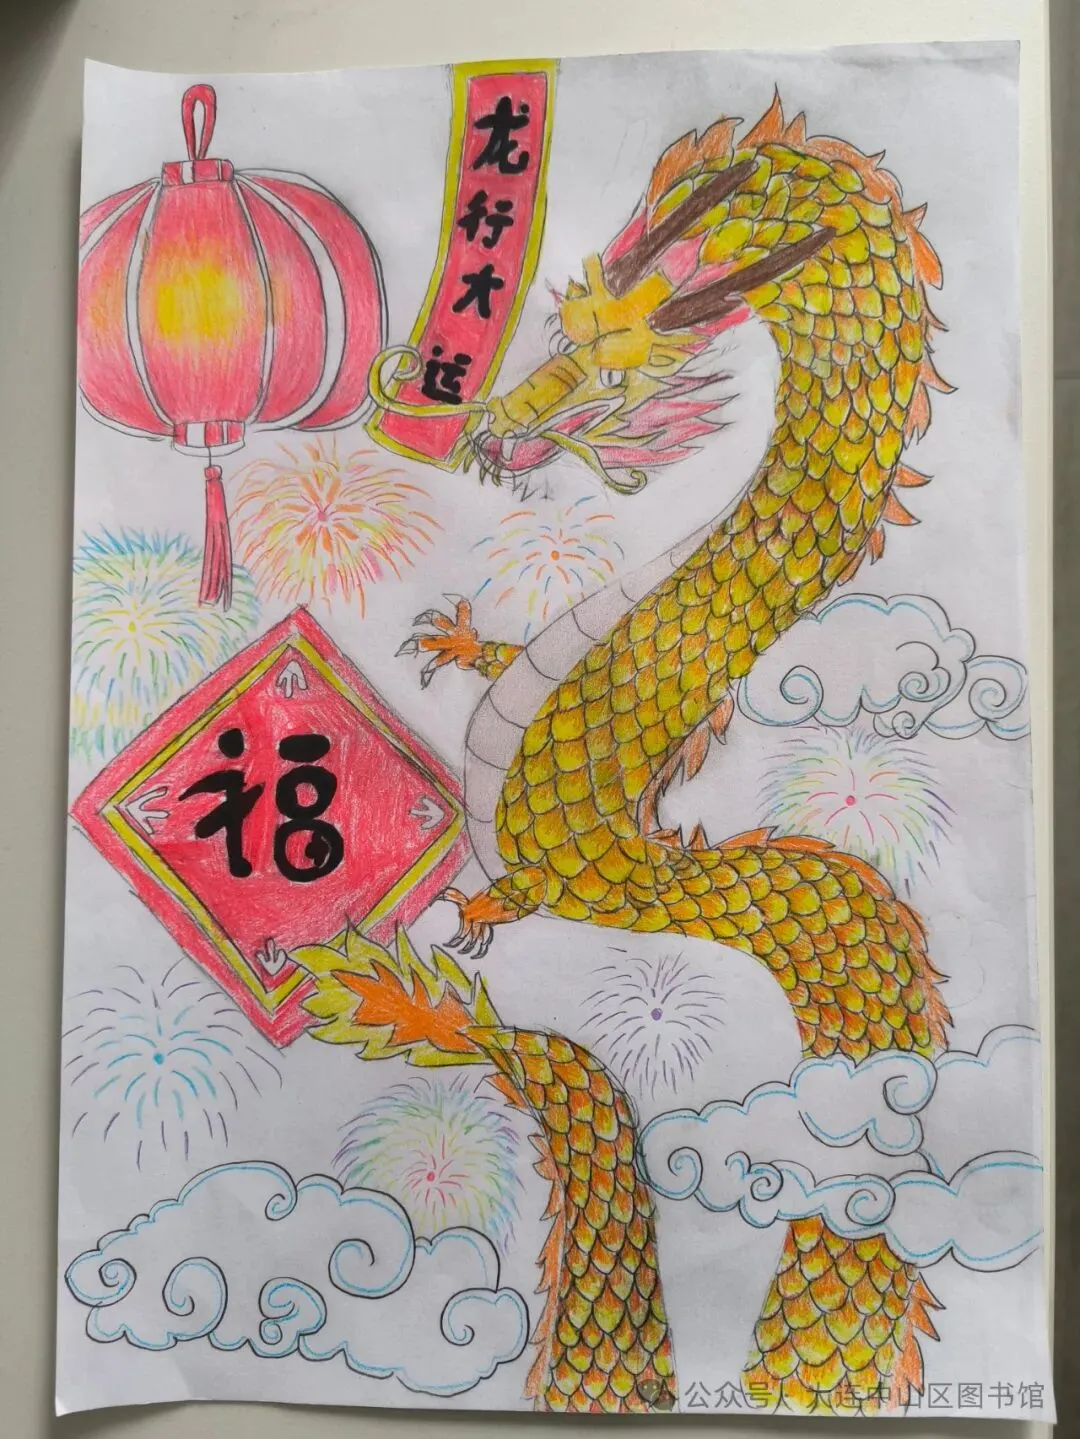 龙行大运
福
公众号 大连中山区图书馆